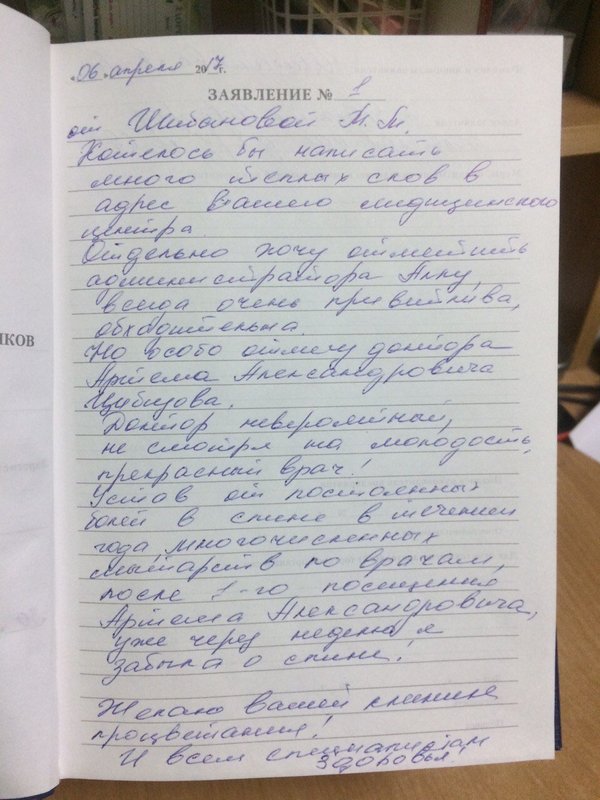 «06» апреля 2017г.
ЗАЯВЛЕНИЕ № 1
от Шибановой М.М.
Хотелось бы написать
много теплых слов в
адрес вашего медицинского
центра.
Отдельно хочу отметить
администратора Анну,
всегда очень приветлива,
обходительна
Но особо отмечу доктора
Артема Александровича
Цибизова.
Доктор невероятный,
не смотря на молодость,
прекрасный врач!
Устав от постоянных
болей в спине в течении
года, многочисленных
мытарств по врачам,
после 1-го посещения
Артема Александровича,
уже через неделю я
забыла о спине!
Желаю вашей клинике
процветания!
И всем специалистам
здоровья
ИКОВ